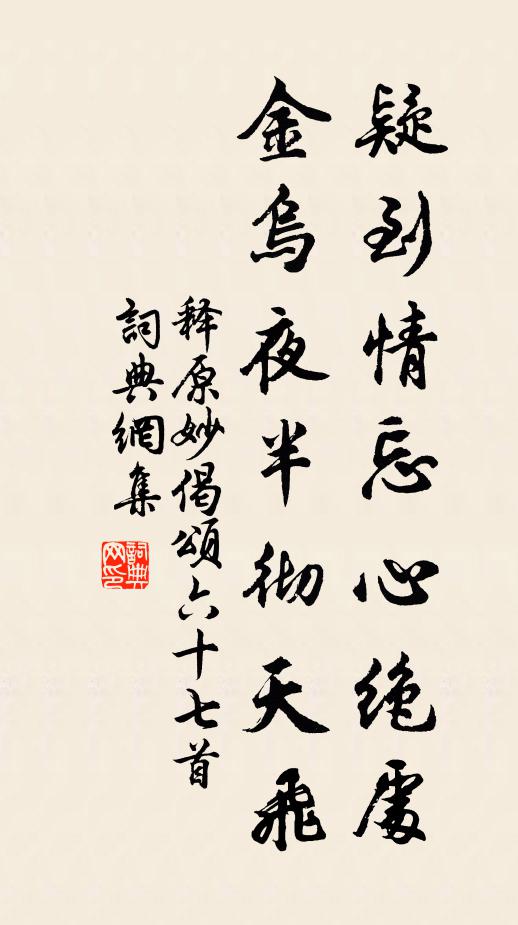 疑到情忘心绝處
金烏夜半彻天飛
释原妙偈颂六十七首
詞典網集
詞典网印